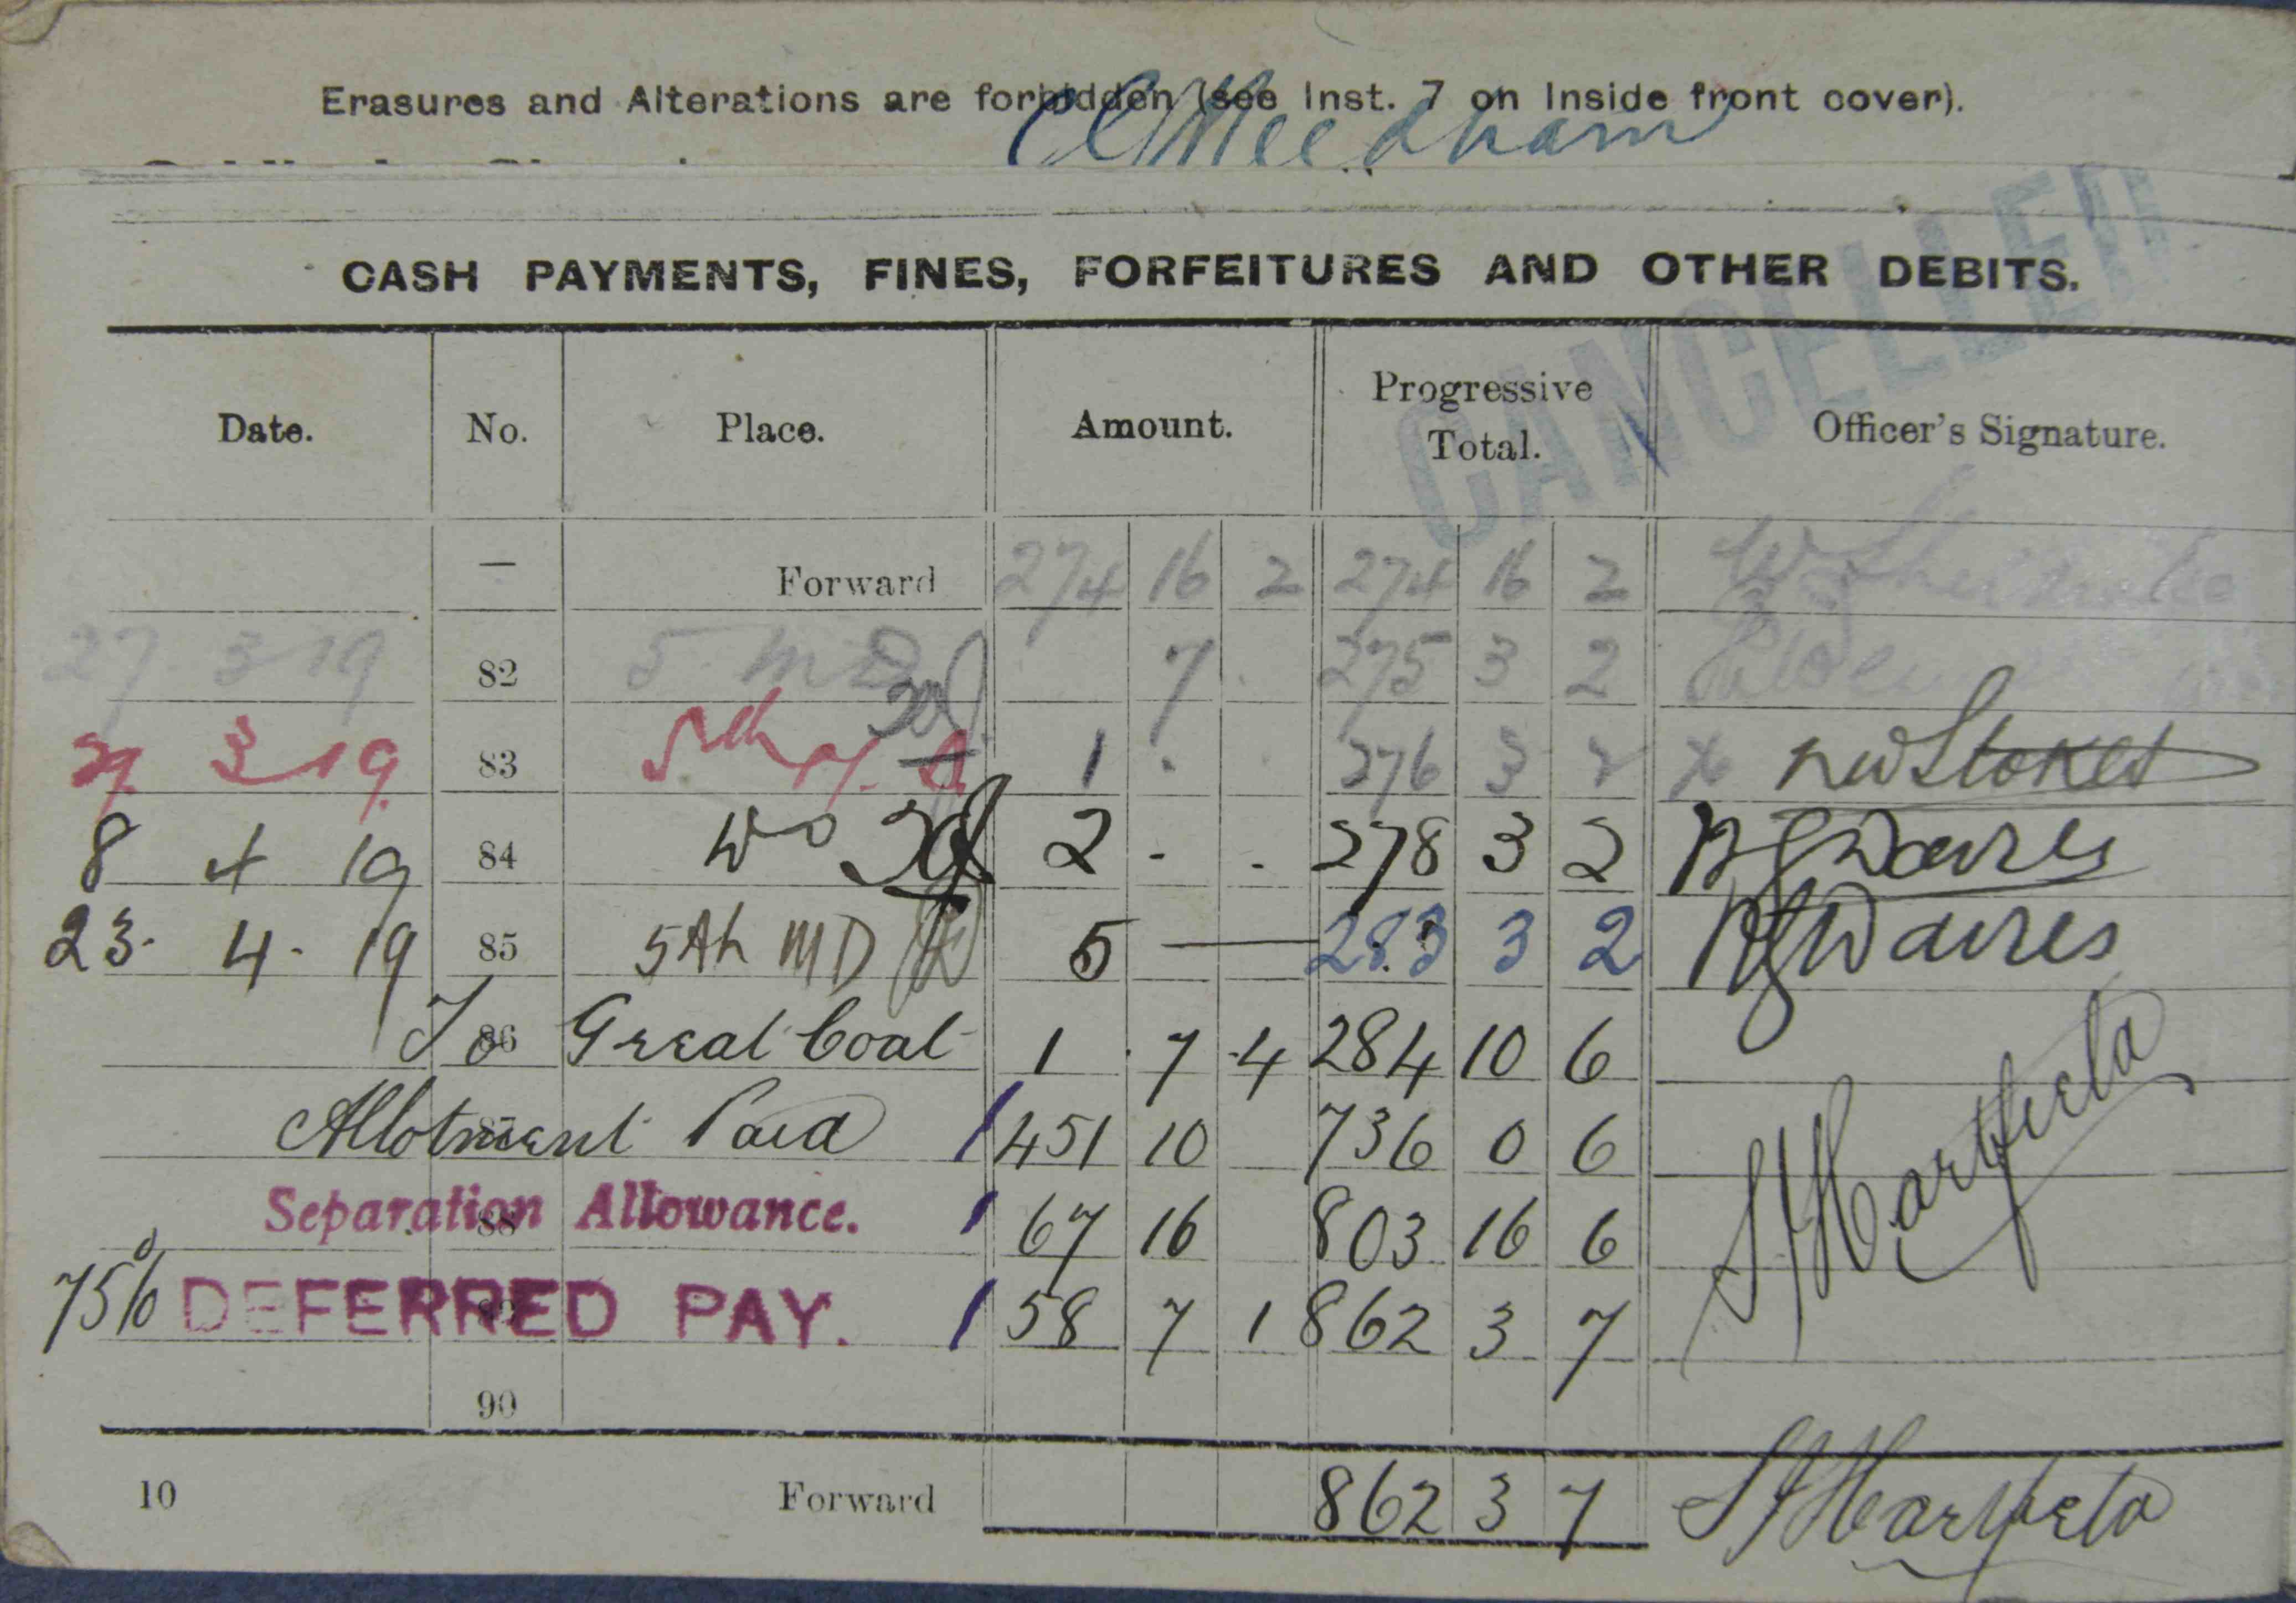 Erasures and Alterations are forbidden (see Inst. 7 on Inside front cover).
Needham
CANCELLED
CASH PAYMENTS, FINES, FORFEITURES AND OTHER DEBITS.
Date. No. Place. Amount. Progressive Total. Officer's Signature.
— Forward 274 16 2 274 16 2
27 3 19 82 5 MD 7 . 275 3 2
27 3 19 83 5th M. D. 1 . . 276 3 2 Stokes
8 4 19 84 2 - - 278 3 2
23. 4. 19 85 5th MD 5 — 283 3 2
To 86 Great Coat 1 7 4 284 10 6
Allotment 87 Paid 451 10 736 0 6
Separation 88 Allowance. 67 16 803 16 6
75% DEFERRED 89 PAY. 58 7 1 862 3 7
90
10 Forward 862 3 7